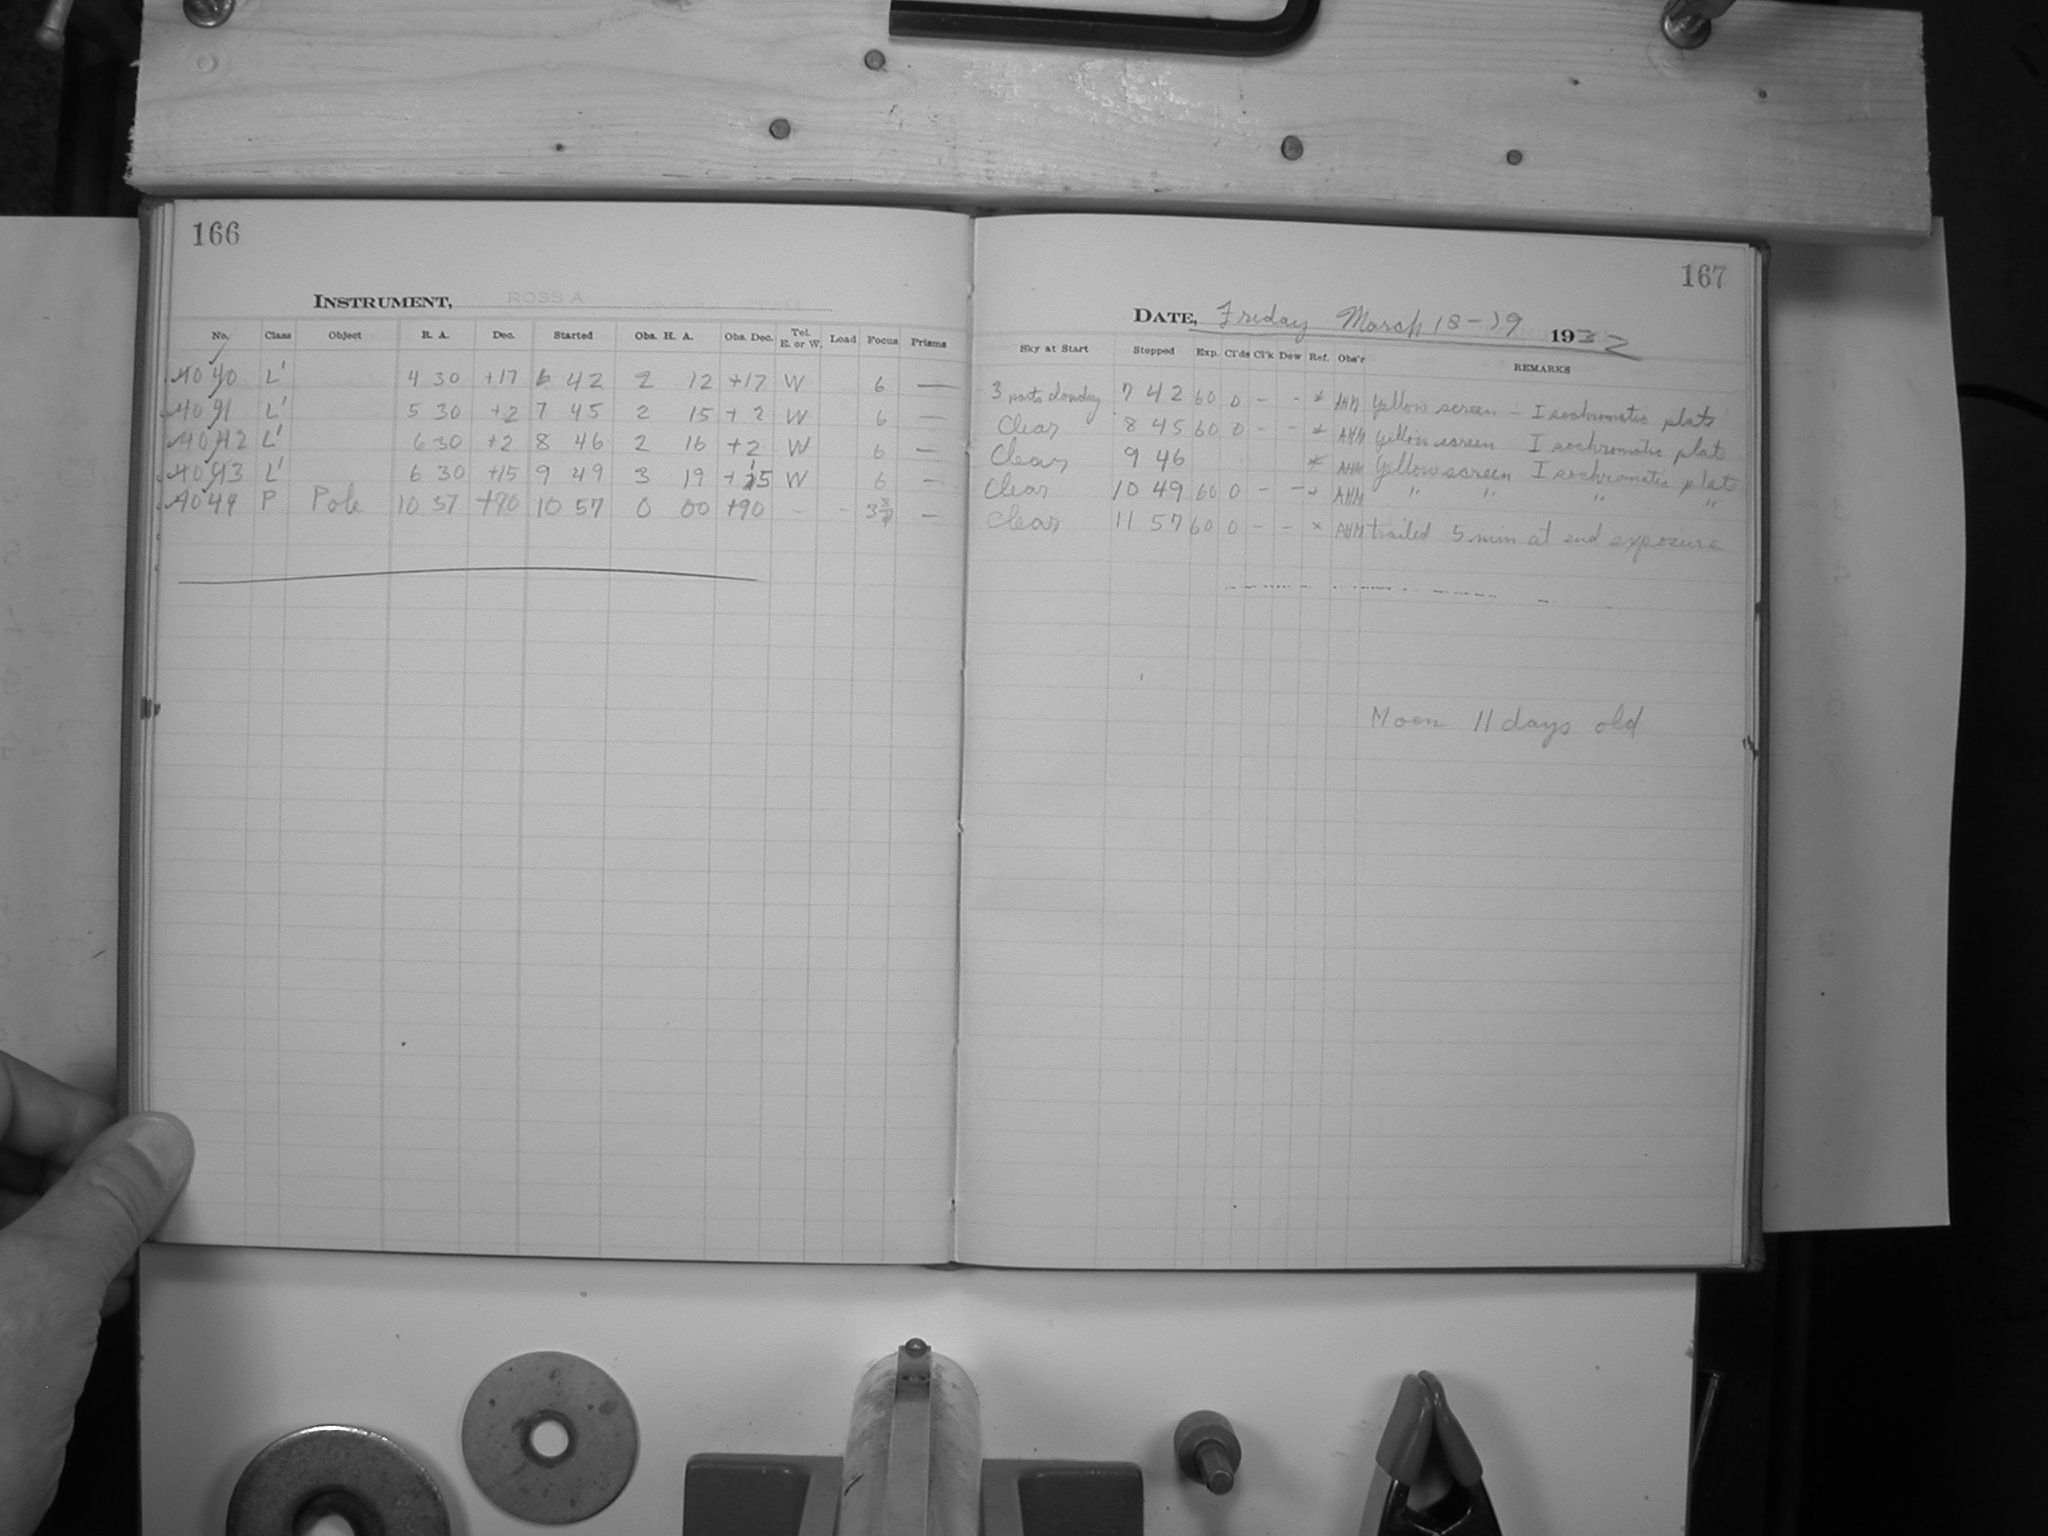 166
INSTRUMENT, ROSS A
No. Class Object R. A. Dec. Started Obs. H. A. Obs. Dec. Tel. E. or W. Load Focus Prisms
4040 L' 4 30 +17 6 42 2 12 +17 W 6 —
4041 L' 5 30 +2 7 45 2 15 +2 W 6 —
4042 L' 6 30 +2 8 46 2 16 +2 W 6 —
4043 L' 6 30 +15 9 49 3 19 +15 W 6 —
4044 P Pole 10 57 +90 10 57 0 00 +90 - - —
167
DATE, Friday March 18-19 1932
Sky at Start Stopped Exp. Cl'ds Cl'k Dew Ref. Obs'r REMARKS
3 parts cloudy 7 42 60 0 - - * AHM Yellow screen - Isochromatic plate
Clear 8 45 60 0 - - * AHM Yellow screen Isochromatic plate
Clear 9 46 * AHM Yellow screen Isochromatic plate
Clear 10 49 60 0 - - AHM " " " "
Clear 11 57 60 0 - - × AHM trailed 5 min at end exposure
Moon 11 days old